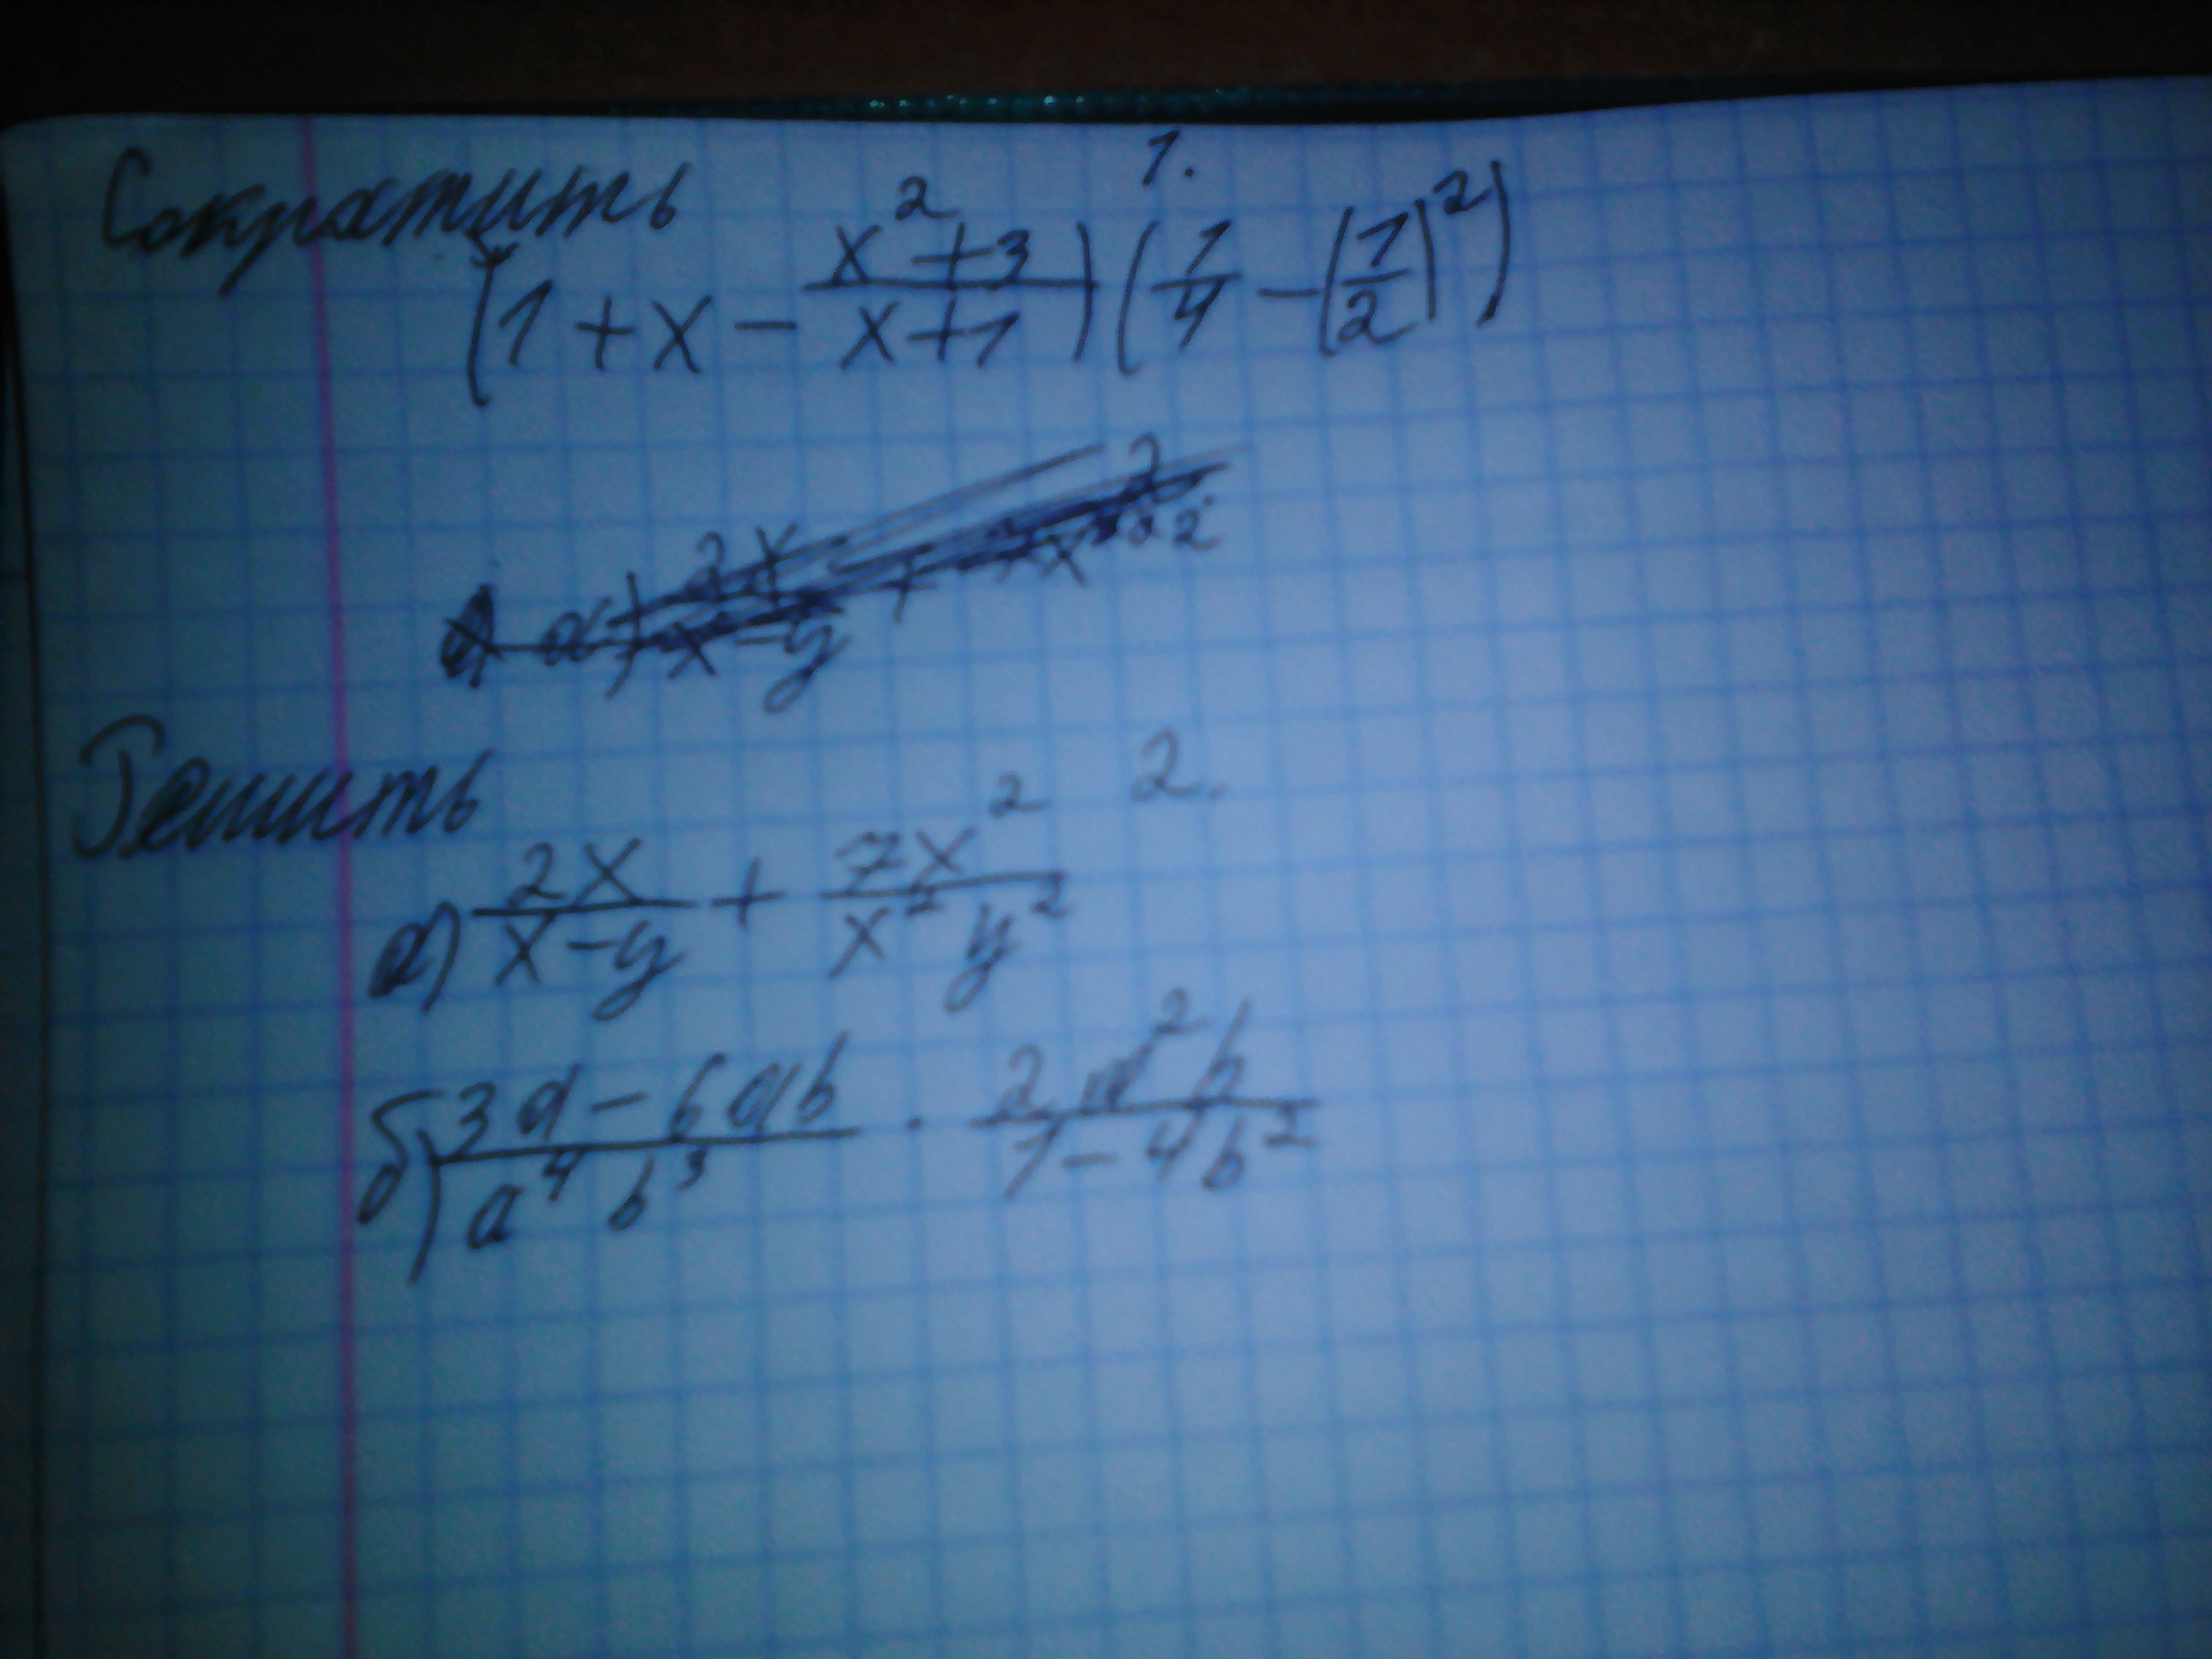 1.
Сократить
(1 + x - \frac{x^2+3}{x+1})(\frac{1}{4} - (\frac{1}{2})^2)
2.
Решить
а) \frac{2x}{x-y} + \frac{7x^2}{x^2 y^2}
б) \frac{3a - 6ab}{a^4 b^3} \cdot \frac{2 b}{1-4b^2}